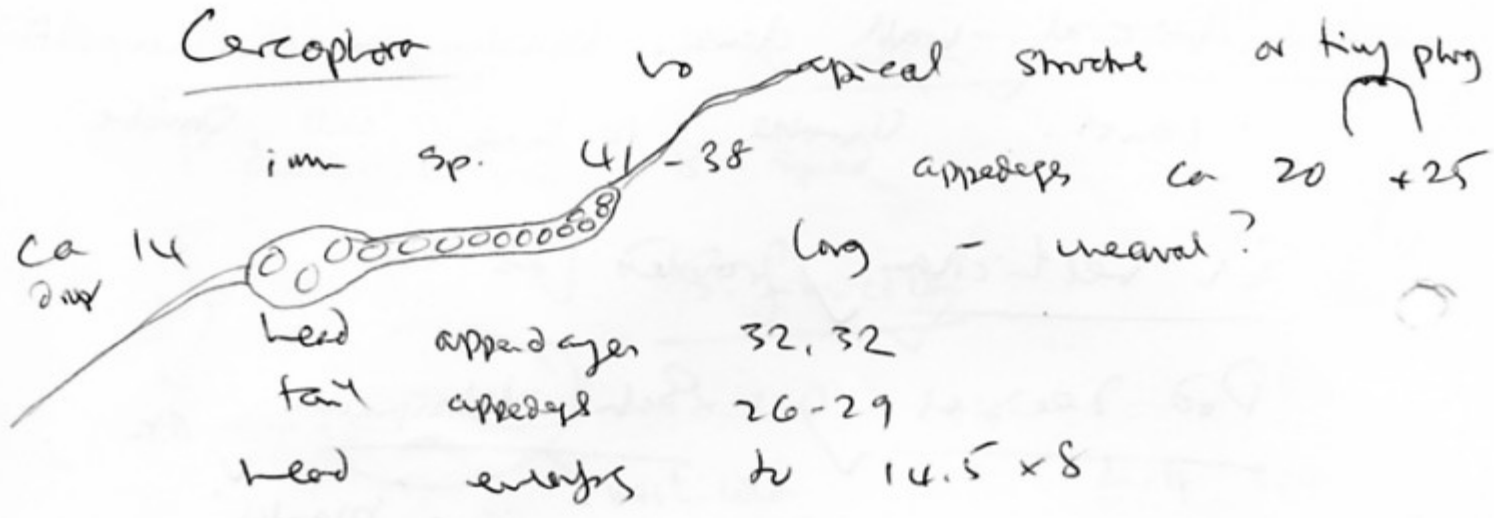 Cercophora no apical structure or tiny plug
imm sp. 41-38 appedages ca 20 + 25
ca 14 long - unequal?
drops
head appendages 32, 32
tail appedages 26-29
head enlarges to 14.5 x 8